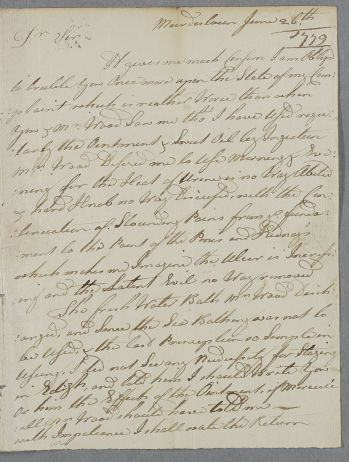 Murdostoun June 26th
1779
Dr Sir
It gives me much Consern I am Oblig'd
to trouble you Once more upon the State of my Com
plaint which is reather Worce than when
you & Mr Wood Saw me tho I have Used regu
larly the Ointment & Sweet Oel by Injection
Mr Wood Desired me to Use Morning & Eve
ning for the Heat of Urine is no way Abated
& hard Knob no way Discuss'd with the Con
tinuation of Shooting Pains from ye funda
ment to the Point of the Penis and Kidneys
which makes me Imagine the Ulcer is Incress
ing and the Latent Evil no way removed
The fresh Water Bath Mr Wood Disch
arged, and Since the Sea Bathing was not to
be Used, & the last Prescription so Simple in
Using, I did not See any Necessity for Staying
in Edinr, and told him I should Write you
or him the Effects of the Ointment, if Mercuri
all Mr Wood should have told me
with Impatience I shall wate the Return